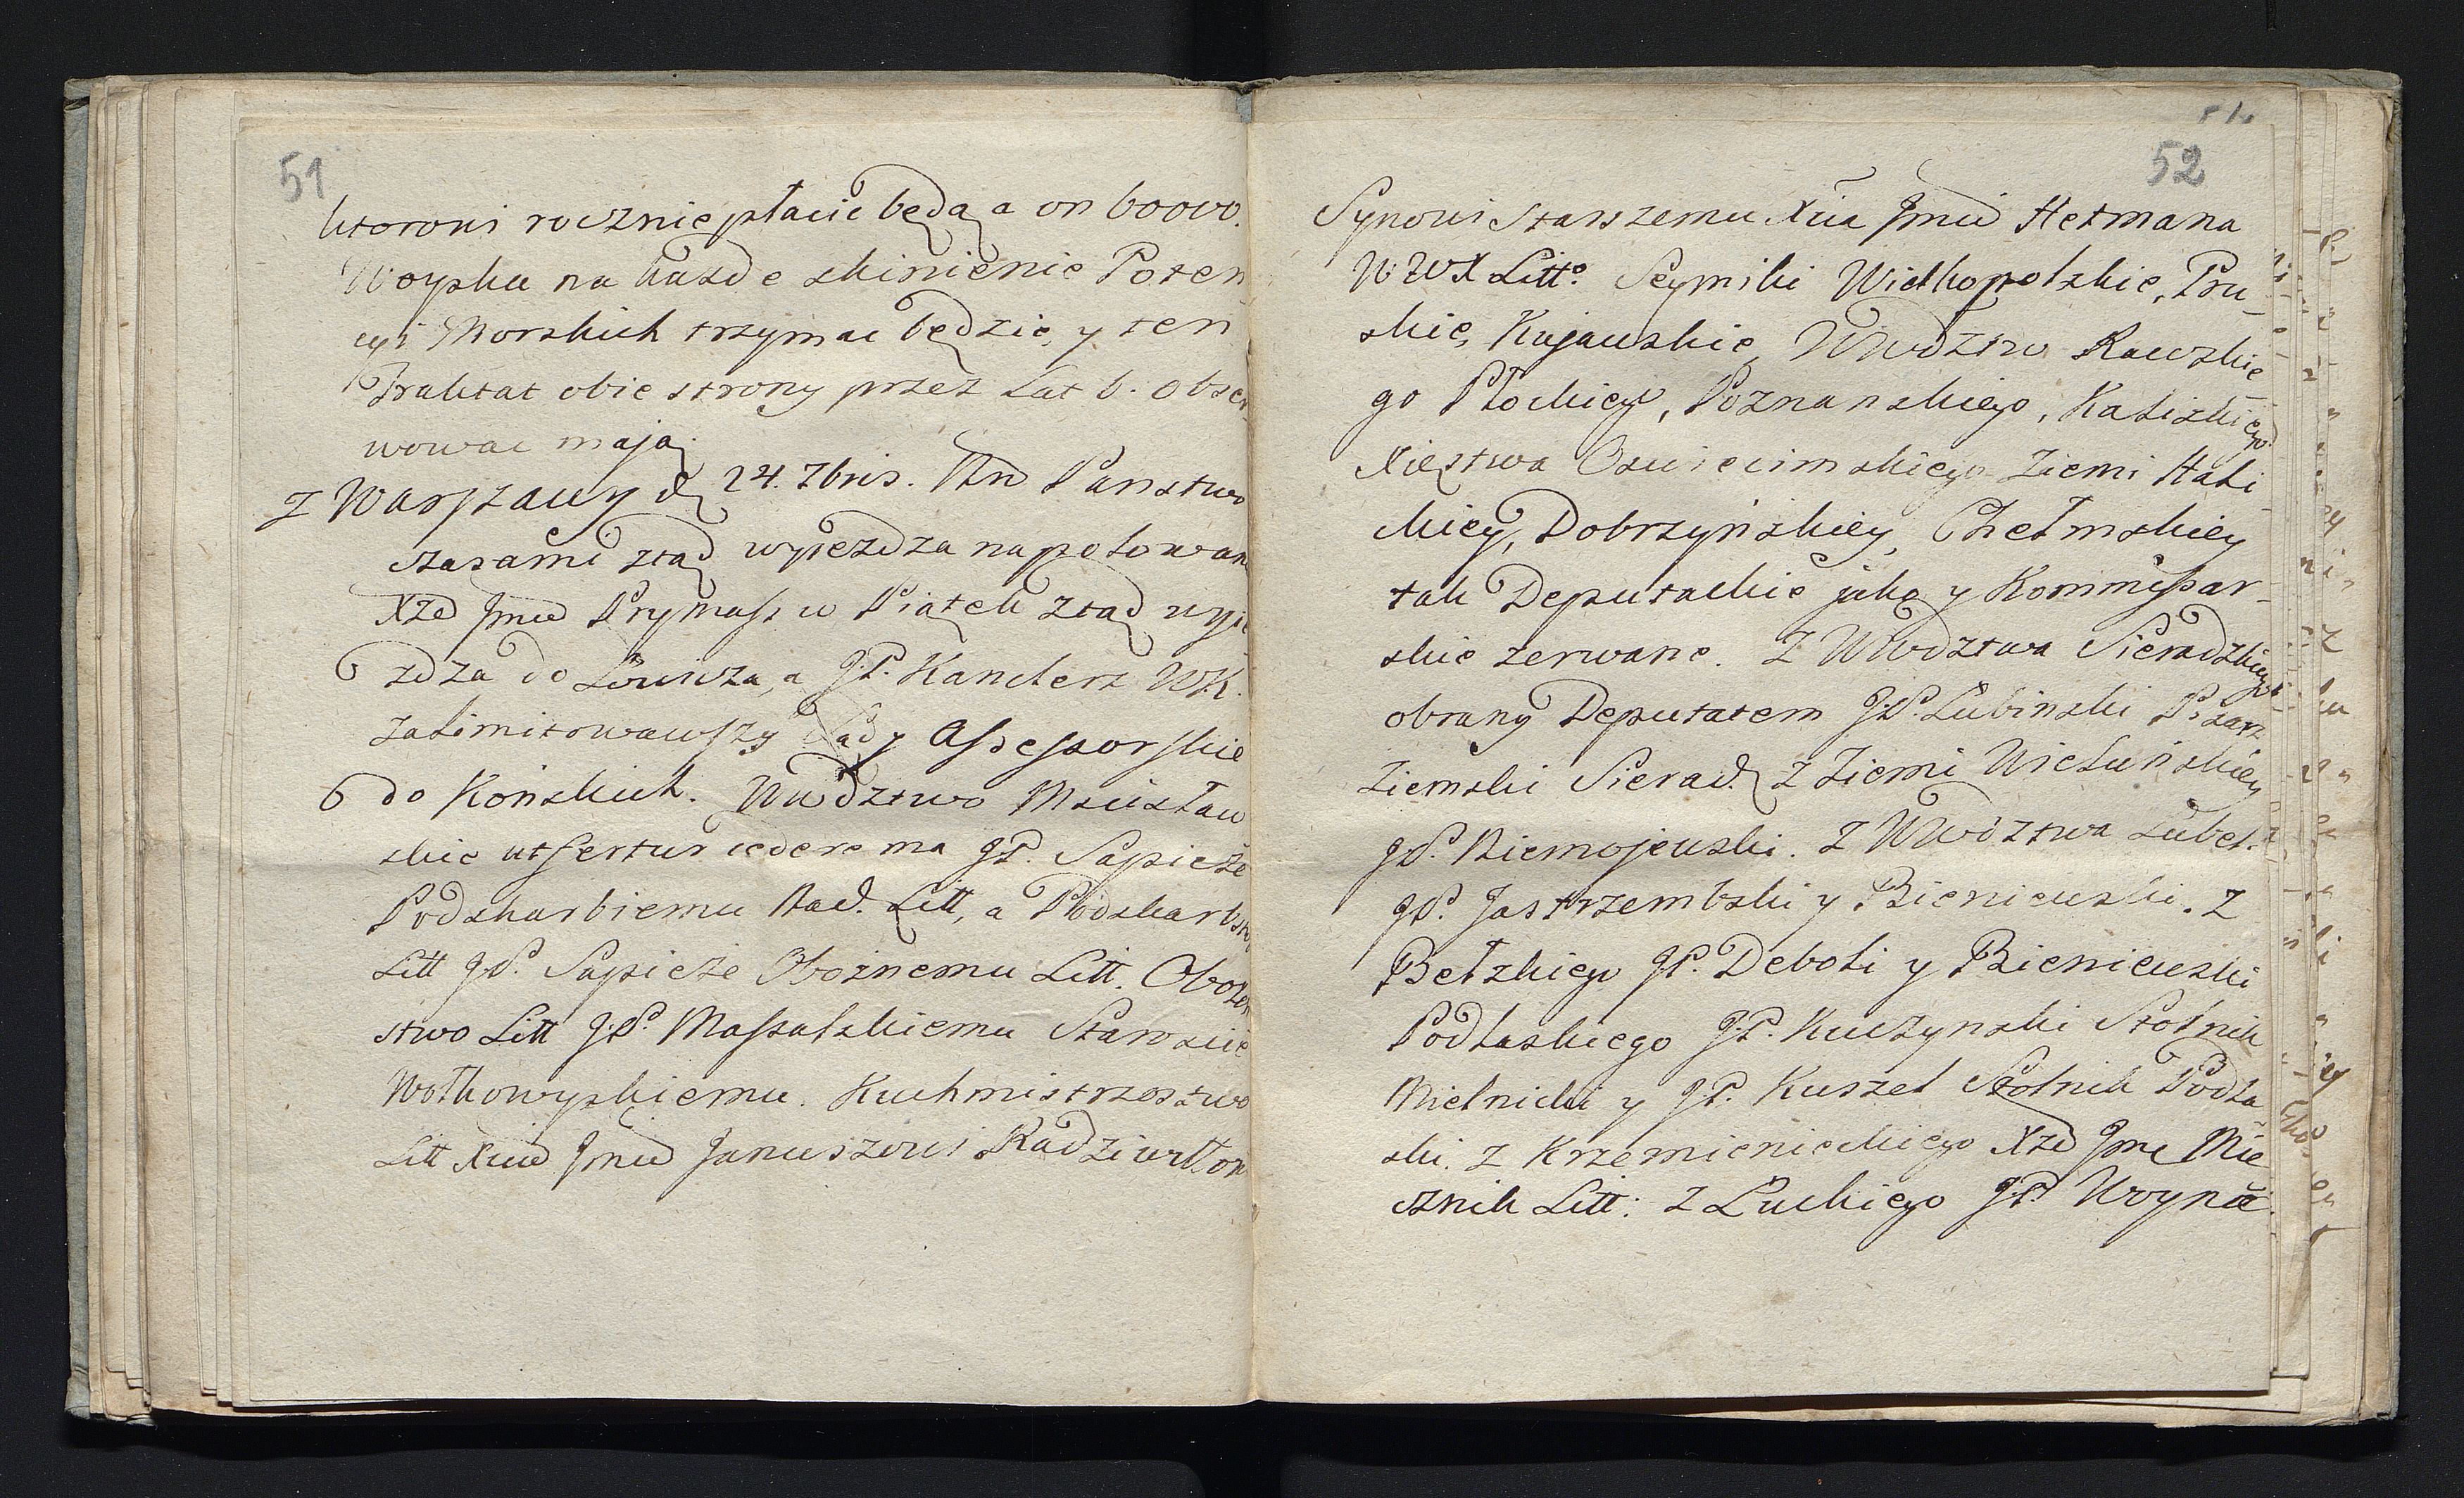 51
ktoroni rocznie płacic będą a on 6000.
Woyska na każde skinienie Poten
cyi Morskich trzymac będzie, y ten
Traktat obie strony przez Lat 6. obser
wowac mają.
Z Warszawy d. 24. 7bris. Krol Panstwo
czasami ztąd wyiezdza na polowan
Xże Jmć Prymass w Piątek ztąd wyie
zdza do Łowicza, a J.P. Kanclerz WK.
zalimitowawszy Sądy Assessorskie
do Końskich. Wwdztwo Mscisław
skie ut fertur cedere ma JP. Sapieże
Podskarbiemu Nad. Litt, a Podskarbstwo
Litt JP. Sapieże Oboźnemu Litt. Oboźń
stwo Litt J.P. Massalskiemu Staroście
Wołkowyskiemu. Kuchmistrzostwo
Litt Xciu Jmci Januszowi Radziwiłłow
52
Synowi Starszemu Xcia Jmci Hetmana
W.W.X Litto. Seymiki Wielkopolskie, Pru
skie, Kujawskie, Wwdztw Rawskie
go Płockiego, Poznanskiego, Kaliskiego
Xięstwa Oswiecimskiego Ziemi Hali
ckiey, Dobrzyńskiey, Chełmskiey
tak Deputackie jako y Kommissar
skie zerwane. Z Wwdztwa Sieradzkiego
obrany Deputatem J.P. Lubinski Pisarz
Ziemski Sierad. Z Ziemi Wieluńskiey
J.P. Niemojewski. Z Wwdztwa Lubel.
J.P. Jastrzembski y Bieniewski. Z
Bełzkiego J.P. Deboli y Bieniewski
Podlaskiego J.P. Kuczynski Stolnik
Mielnicki y J.P. Kuszel Stolnik Podla
ski. Z Krzemienieckiego Xże Jmć Mie
cznik Litt: Z Łuckiego J.P. Woyna.